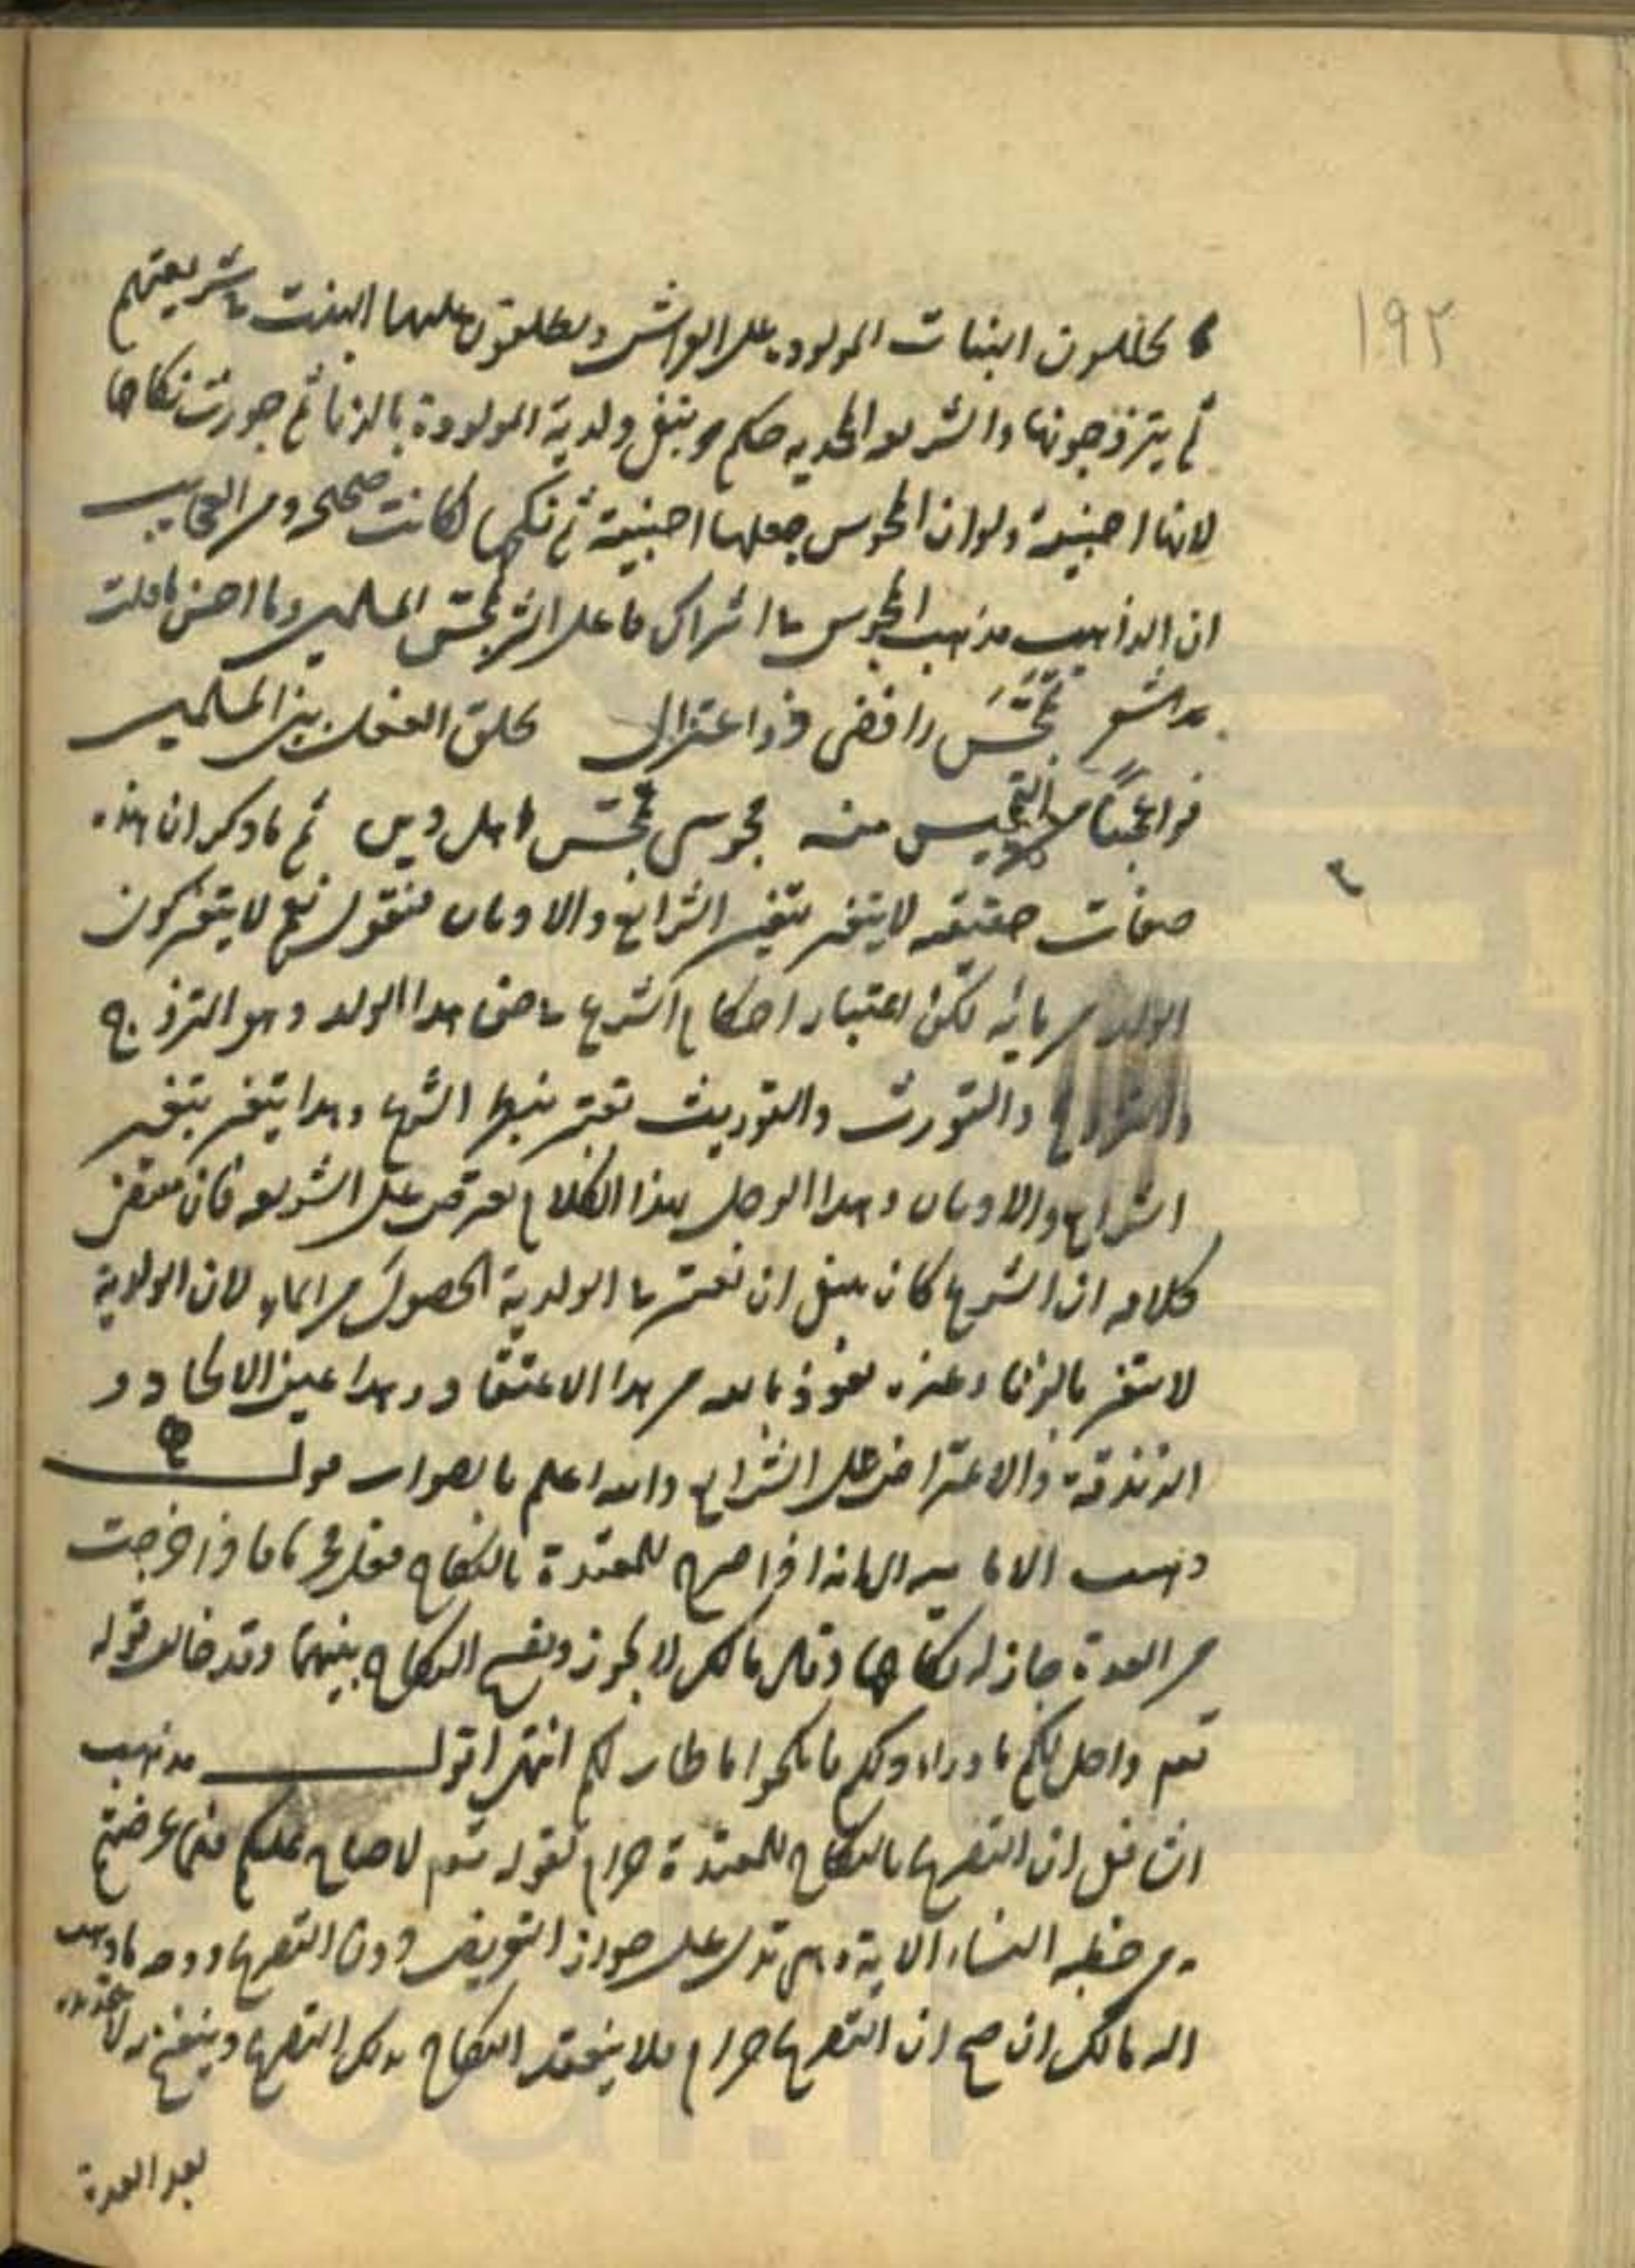 ١٩٢
يحللون البنات المولودة على الفراش ويطلقون عليها البنت في شريعتهم
ثم يتزوجونها والشريعة المحمدية حكم بنفي ولدية المولودة بالزنا ثم جوزت نكاحها
لانها اجنبية ولو ان المجوس جعلها اجنبية ثم نكحها لكانت صحيحة ومن العجايب
ان الذاهب مذهب المجوس في اشراك فاعل الشر تمجس المسلمين وما احسن ما قلت
شعر تمجس رافضي ذو اعتزال بين المسلمين
فواعجبا من التمجيس منه مجوسي تمجس اهل دين ثم ما ذكر ان هذه
صفات حقيقية لا يتغير بتغير الشرايع والاديان فنقول نعم لا يتغير كون
الولد من مائه لكن اعتبار احكام الشرع في حق هذا الولد وهو التزوج
والتورث والتوريث تعتبر فيها الشرع وهذا يتغير بتغير
الشرايع والاديان وهذا الرجل بهذا الكلام يعترض على الشريعة فان مقتضى
كلامه ان الشرع كان ينبغي ان تعتبر في الولدية الحصول من الماء لان الولدية
لا تتغير بالزنا وغيره نعوذ بالله من هذا الاعتقاد وهذا عين الالحاد و
الزندقة والاعتراض على الشرايع والله اعلم بالصواب قال
ذهبت الامامية الى انه اذا صرح للمعتدة بالنكاح فعل محرما فاذا خرجت
من العدة جاز له نكاحها وقال مالك لا يجوز ويفسخ النكاح بينهما وقد خالف قوله
تعم واحل لكم ما وراء ذلكم فانكحوا ما طاب لكم انتهى اقول مذهب
الشافعي ان التصريح بالنكاح للمعتدة حرام لقوله تعم لا جناح عليكم فيما عرضتم
به من خطبة النساء الاية وهي تدل على جواز التعريض دون التصريح ووجه ما ذهب
اليه مالك ان صح ان التصريح حرام فلا ينعقد النكاح بذلك التصريح وينفسخ
بعد العدة